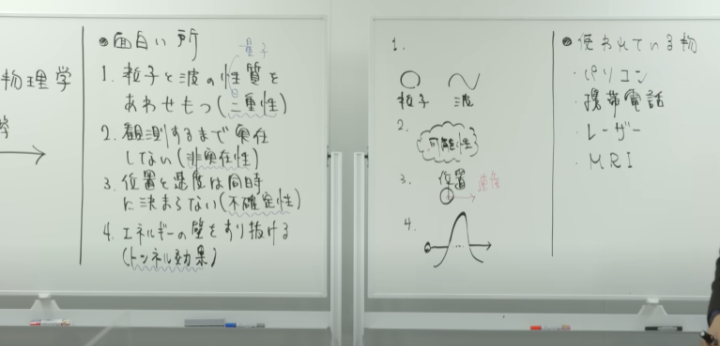 物理学
学
●面白い所
量子
1. 粒子と波の性質を
あわせもつ(二重性)
2. 観測するまで実在
しない(非実在性)
3. 位置と速度は同時
に決まらない(不確定性)
4. エネルギーの壁をすり抜ける
(トンネル効果)
1.
粒子 波
2.
可能性
3. 位置 速度
4.
●使われている物
・パソコン
・携帯電話
・レーザー
・MRI